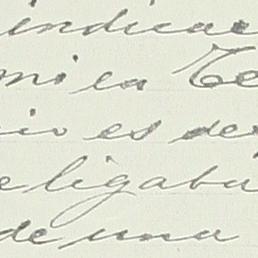 indicac
mi en Te
io es de
e ligabu
de una